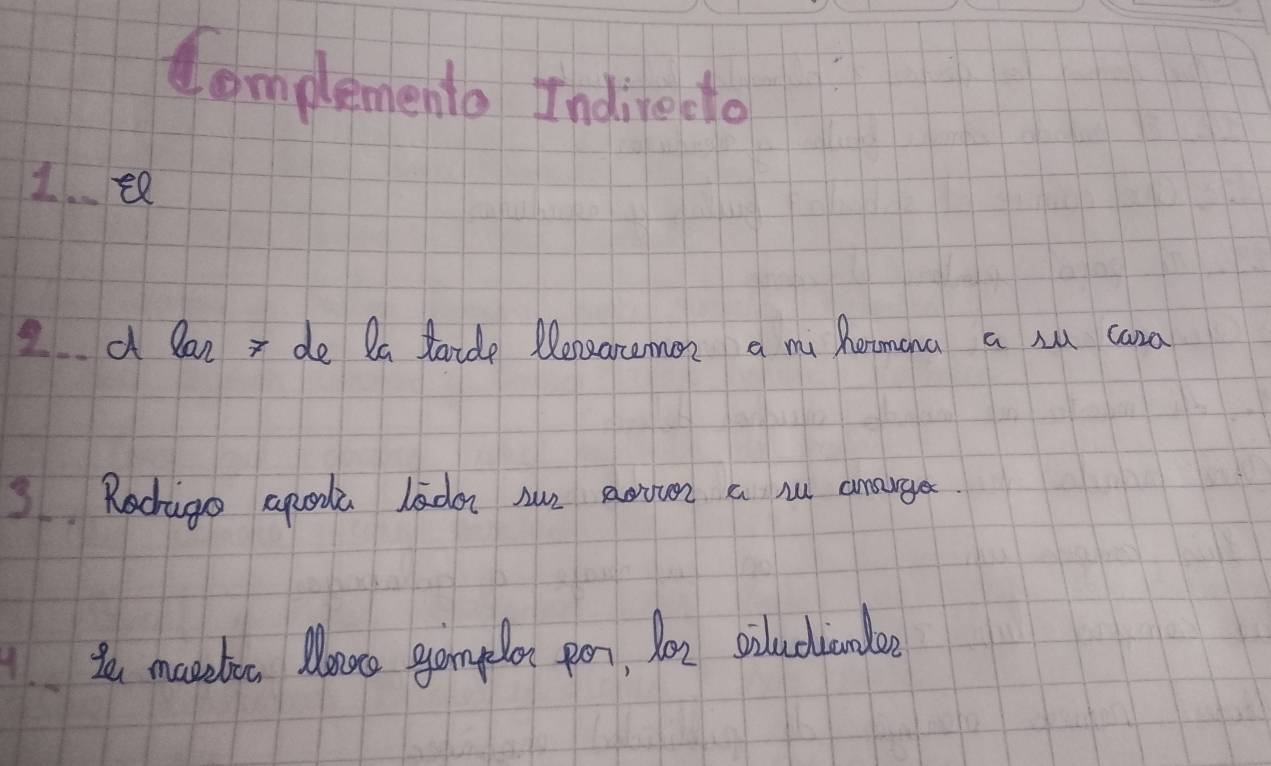 Complemento Indirecto
1.. El
2.. A las 7 de la tarde llevaremos a mi hermana a su casa
3.. Rodrigo aporta todos sus a su amarga.
4.. La maestra lleva ejemplos por, los estudiantes